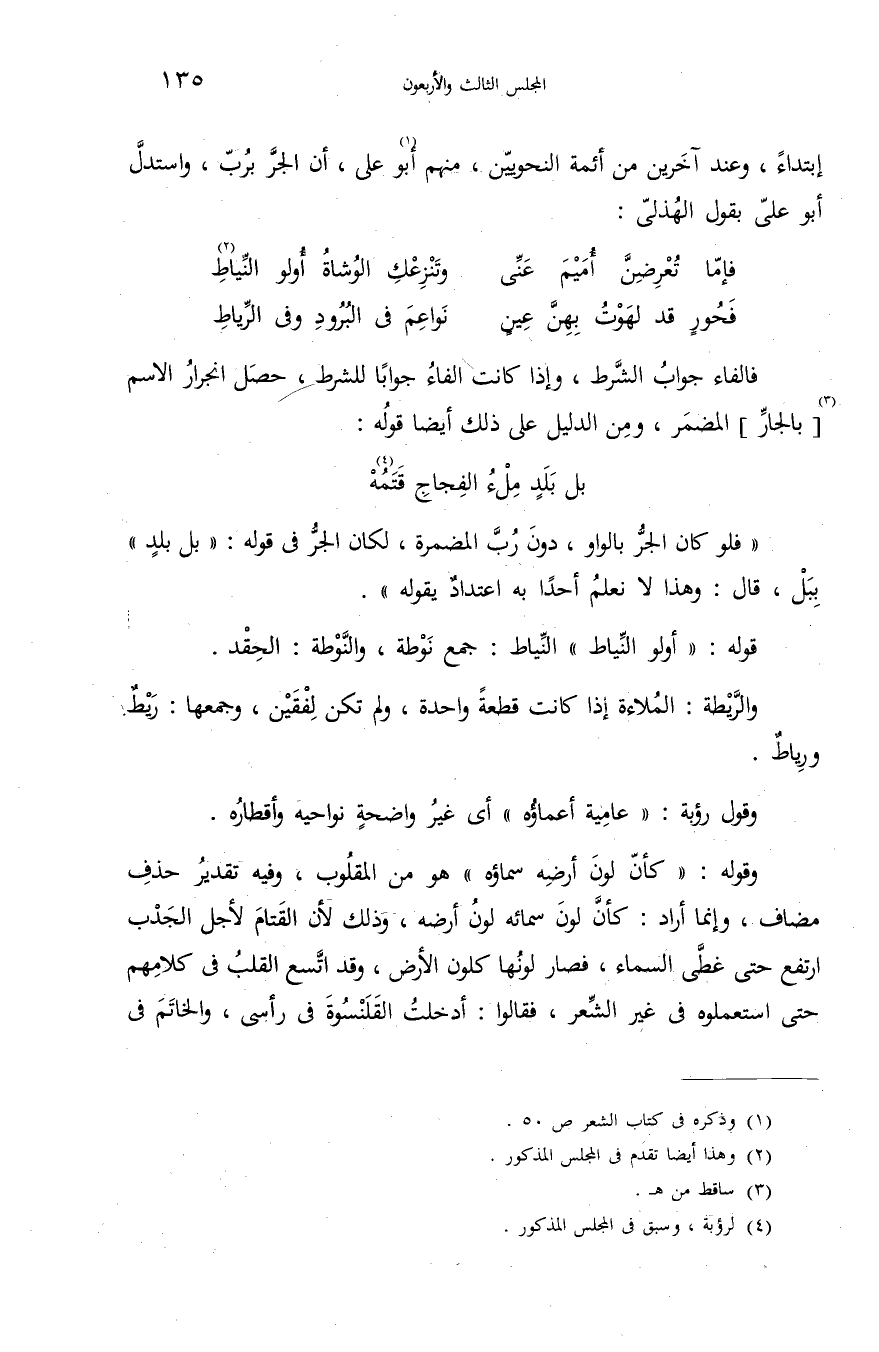 المجلس الثالث والأربعون ١٣٥
إبتداءً ، وعند آخَرين من أئمة النحوييّن ، منهم أبو على(١) ، أن الجرَّ برُبّ ، واستدلَّ
أبو علىّ بقول الهُذلىّ :
فإمّا تُعْرِضِينَّ أُمَيْمَ عَنِّى وتَنْزِعْكِ الوُشاةُ أُولو النِّياطِ(٢)
فَحُورٍ قد لهَوْتُ بِهِنَّ عِينٍ نَواعِمَ فى البُرُودِ وفى الرِّياطِ
فالفاء جوابُ الشَّرط ، وإذا كانت الفاءُ جوابًا للشرط ، حصَل انجرارُ الاسم
[ بالجارِّ ](٣) المضمَر ، ومِن الدليل على ذلك أيضا قولُه :
بل بَلَدٍ مِلْءُ الفِجاجِ قَتَمُهْ(٤)
« فلو كان الجرُّ بالواو ، دونَ رُبَّ المضمرة ، لكان الجرُّ فى قوله : « بل بلدٍ »
بِبَلْ ، قال : وهذا لا نعلمُ أحدًا به اعتدادٌ يقوله » .
قوله : « أولو النِّياط » النِّياط : جمع نَوْطة ، والنَّوْطة : الحِقْد .
والرَّيْطة : المُلاءة إذا كانت قطعةً واحدة ، ولم تكن لِفْقَيْن ، وجمعها : رَيْطٌ
ورِياطٌ .
وقول رؤبة : « عامِية أعماؤُه » أى غيرُ واضحةٍ نواحيه وأقطارُه .
وقوله : « كأنّ لونَ أرضِه سماؤه » هو من المقلُوب ، وفيه تقديرُ حذفِ
مضاف ، وإنما أراد : كأنَّ لونَ سمائه لونُ أرضه ، وذلك لأن القَتامَ لأجل الجَدْب
ارتفع حتى غطَّى السماء ، فصار لونُها كلون الأرض ، وقد اتَّسع القلبُ فى كلامِهم
حتى استعملوه فى غير الشِّعر ، فقالوا : أدخلتُ القَلَنْسُوةَ فى رأسى ، والخاتَمَ فى
(١) وذكره فى كتاب الشعر ص ٥٠ .
(٢) وهذا أيضا تقدم فى المجلس المذكور .
(٣) ساقط من هـ .
(٤) لرؤبة ، وسبق فى المجلس المذكور .